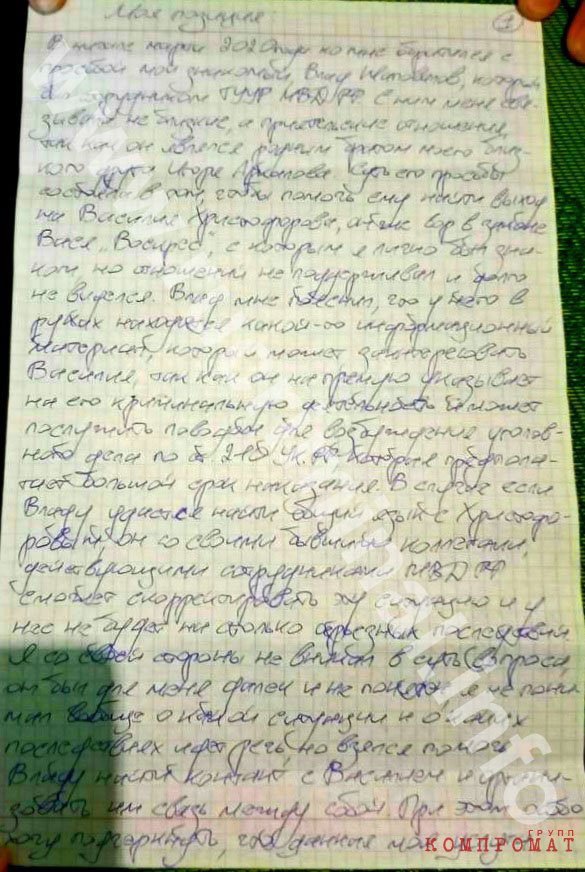 Моя позиция. 1
В начале марта 2020 года ко мне обратился с
просьбой мой знакомый Влад, который
был сотрудником ГУУР МВД РФ. С ним меня свя-
зывали не близкие, а приятельские отношения,
так как он является родным братом моего близ-
кого друга Игоря. Суть его просьбы
состояла в том, чтобы помочь ему найти выход
на Василия Христофорова, он же вор в законе
Вася „Воскрес", с которым я лично был зна-
ком, но отношений не поддерживал и долго
не виделся. Влад мне пояснил, что у него в
руках находится какой-то информационный
материал, который может заинтересовать
Василия, так как он на прямую указывает
на его криминальную деятельность и может
послужить поводом для возбуждения уголов-
ного дела по ст. 210 УК РФ, которая предпола-
гает большой срок наказания. В случае если
Владу удастся найти общий язык с Христофо-
ровым, он со своими бывшими коллегами,
действующими сотрудниками МВД РФ
сможет скорректировать эту ситуацию и у
нас не будет на столько серьезных последствий.
Я со своей стороны не вникал в суть вопроса,
он был для меня далек и не понятен, я не пони-
мал вообще о какой ситуации и о каких
последствиях идет речь, но взялся помочь
Владу найти контакт с Василием и органи-
зовать им связь между собой. При этом
хочу подчеркнуть, что данные мои услуги
www.kompromat.info
ГРУПП
КОМПРОМАТ